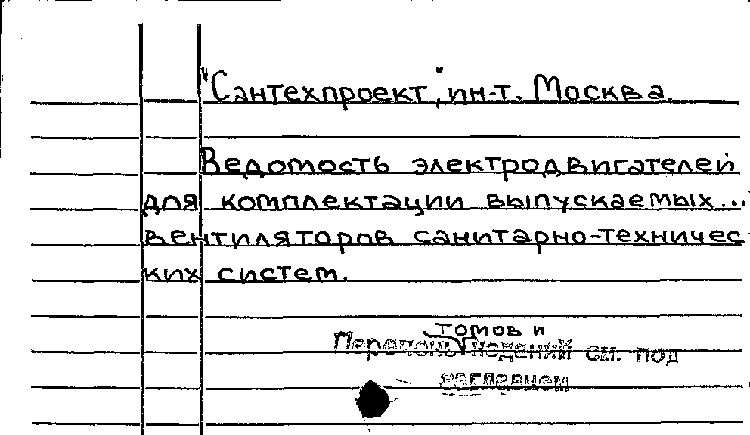 "Сантехпроект", ин-т. Москва.
Ведомость электродвигателей
для комплектации выпускаемых...
вентиляторов санитарно-техничес
ких систем.
томов и
Перечень изданий см. под
заглавием